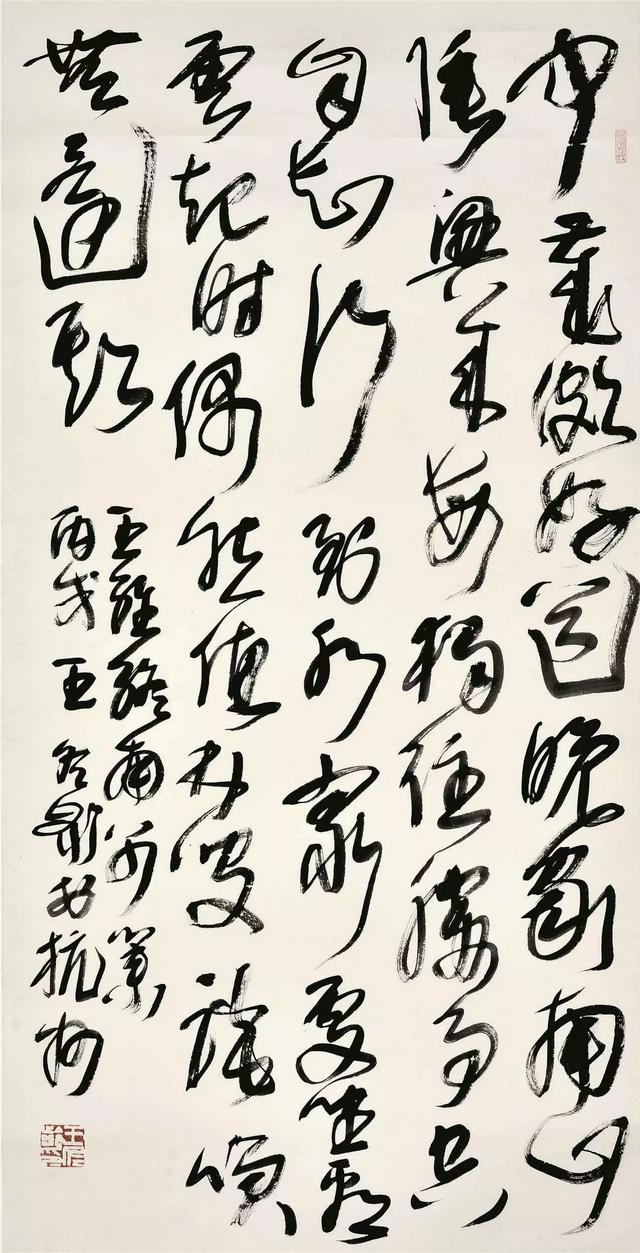 中歲頗好道晚家南山
陲興來每獨往勝事空
自知行到水窮處坐看
雲起時偶然值林叟談笑
無還期
王維終南別業
丙戌王冬齡於杭州